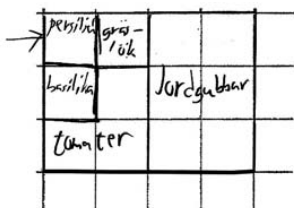 persilja
gräs-
lök
basilika
Jordgubbar
tomater